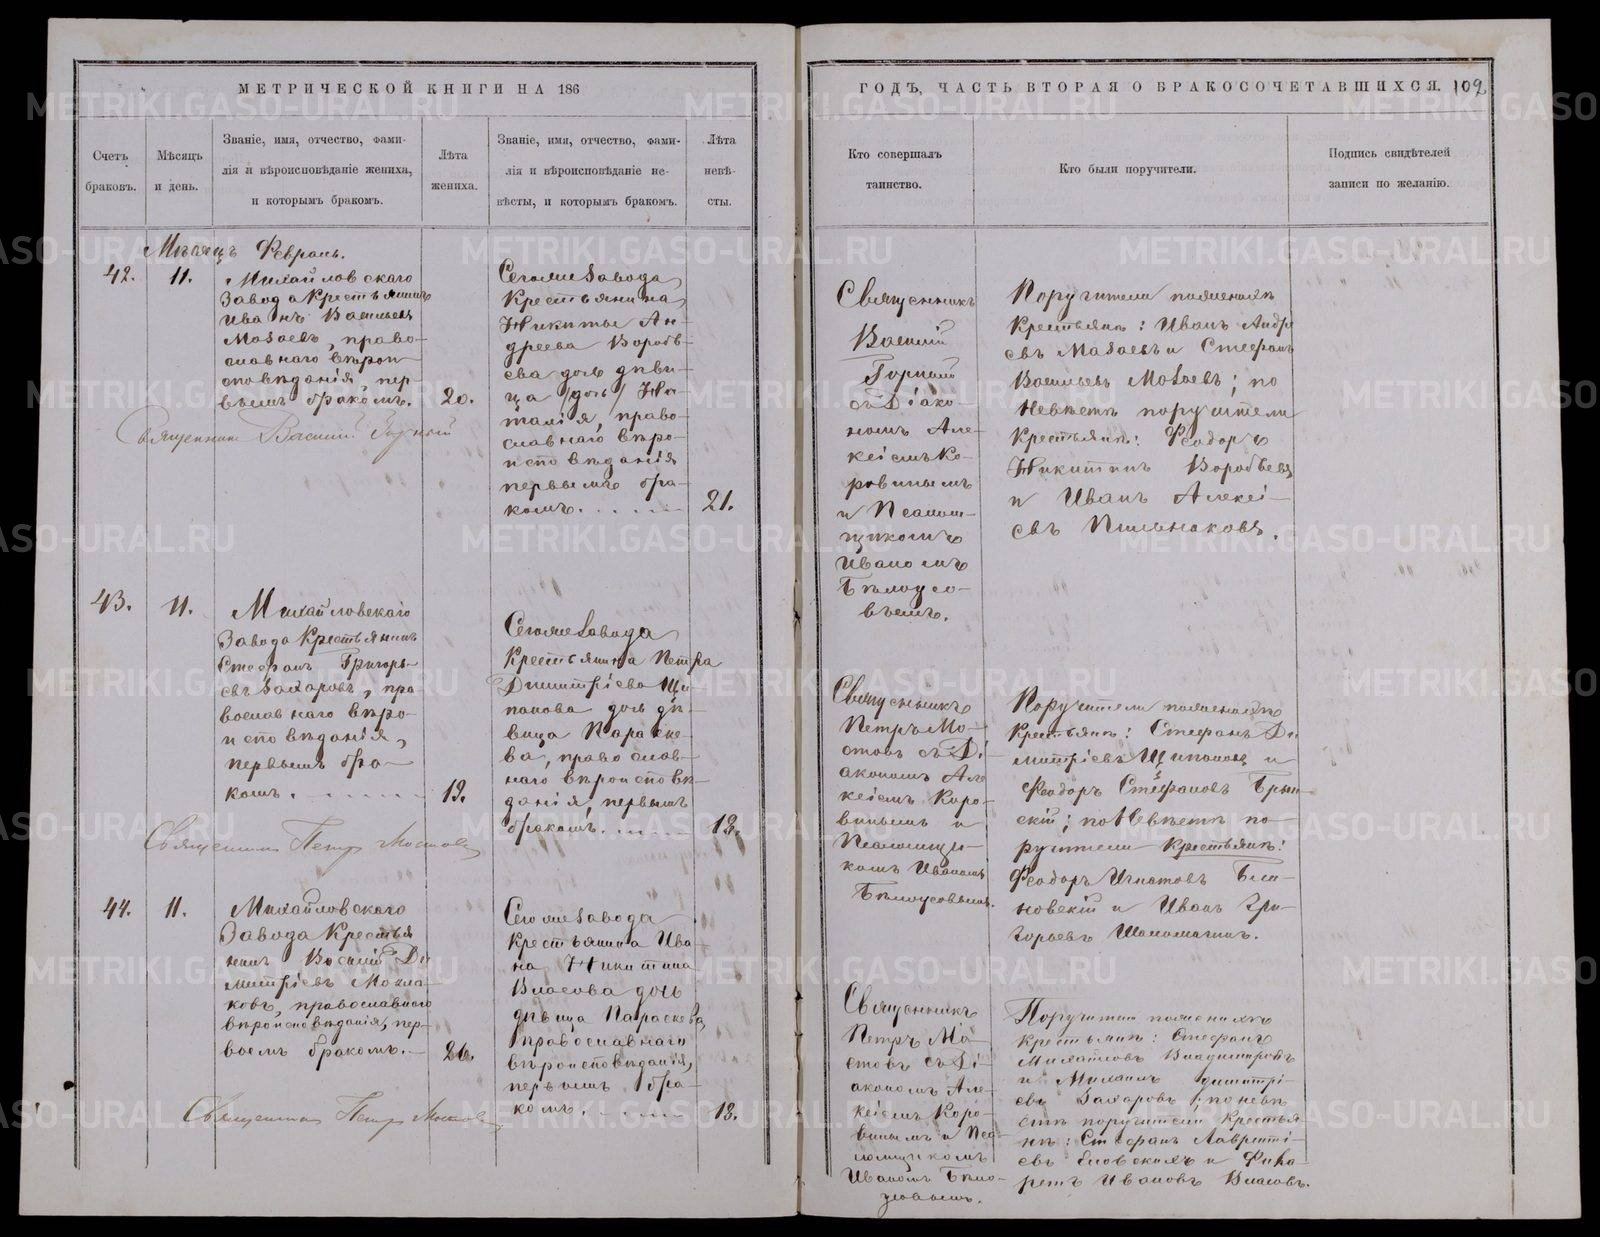 МЕТРИЧЕСКОЙ КНИГИ НА 186
Счетъ
браковъ.
Мѣсяцъ
и день.
Званіе, имя, отчество, фами-
лія и вѣроисповѣданіе жениха,
и которымъ бракомъ.
Лѣта
жениха.
Званіе, имя, отчество, фами-
лія и вѣроисповѣданіе не-
вѣсты, и которымъ бракомъ.
Лѣта
невѣ-
сты.
Мѣсяцъ Февраль.
42.
11.
Михайловскаго
Завода Крестьянинъ
Иванъ Васильевъ
Мазаевъ, право-
славнаго вѣрои-
сповѣданія, пер-
вымъ бракомъ.
20.
Священникъ Василій Горный
Сегоже Завода
Крестьянина
Никиты Ан-
дреева Воробь-
ева дочь дѣви-
ца (дочь) На-
талія, право-
славнаго вѣро-
исповѣданія
первымъ бра-
комъ.
21.
43.
11.
Михайловскаго
Завода Крестьянинъ
Стефанъ Григорь-
евъ Захаровъ, пра-
вославнаго вѣро-
исповѣданія,
первымъ бра-
комъ.
19.
Священникъ Петръ Мостовъ
Сегоже Завода
Крестьянина Петра
Димитріева Щи-
панова дочь дѣ-
вица Параске-
ва, православ-
наго вѣроисповѣ-
данія, первымъ
бракомъ.
18.
44.
11.
Михайловскаго
Завода Крестья-
нинъ Василій Ди-
митріевъ
православнаго
вѣроисповѣданія, пер-
вымъ бракомъ.
26.
Священникъ Петръ Мостовъ
Сегоже Завода
Крестьянина Ива-
на Никитина
Власова дочь
дѣвица Параскева,
православнаго
вѣроисповѣданія,
первымъ бра-
комъ.
18.
ГОДЪ, ЧАСТЬ ВТОРАЯ О БРАКОСОЧЕТАВШИХСЯ. 102
Кто совершалъ
таинство.
Кто были поручители.
Подпись свидѣтелей
записи по желанію.
Священникъ
Василій
Горный
съ Діако-
номъ Але-
ксіемъ Ко-
ровинымъ
и Псалом-
щикомъ
Иваномъ
Бѣлоусо-
вымъ.
Поручители по женихѣ
Крестьяне: Иванъ Андре
евъ Мазаевъ и Стефанъ
Васильевъ Мазаевъ; по
Невѣстѣ поручители
Крестьяне: Феодоръ
Никитинъ Воробьевъ
и Иванъ Алексі-
евъ Пильнаковъ.
Священникъ
Петръ Мо-
стовъ съ Ді-
акономъ Але
ксіемъ Коро-
винымъ и
Псаломщи-
комъ Иваномъ
Бѣлоусовымъ.
Поручители по женихѣ
Крестьяне: Стефанъ Ди
митріевъ Щипановъ и
Феодоръ Стефановъ
по Невѣстѣ по-
ручители Крестьяне:
Феодоръ Игнатовъ
и Иванъ Гри-
горьевъ
Священникъ
Петръ Мо-
стовъ съ Ді-
акономъ Але-
ксіемъ Коро-
винымъ и Пса-
ломщикомъ
Иваномъ Бѣло-
усовымъ.
Поручители по женихѣ
Крестьяне: Стефанъ
Михайловъ Владимировъ
и Михаилъ Димитрі-
евъ Захаровъ; по невѣ-
стѣ поручители Крестья-
не: Стефанъ Лаврентi-
евъ и
Ивановъ Власовъ.
METRIKI.GASO-URAL.RU